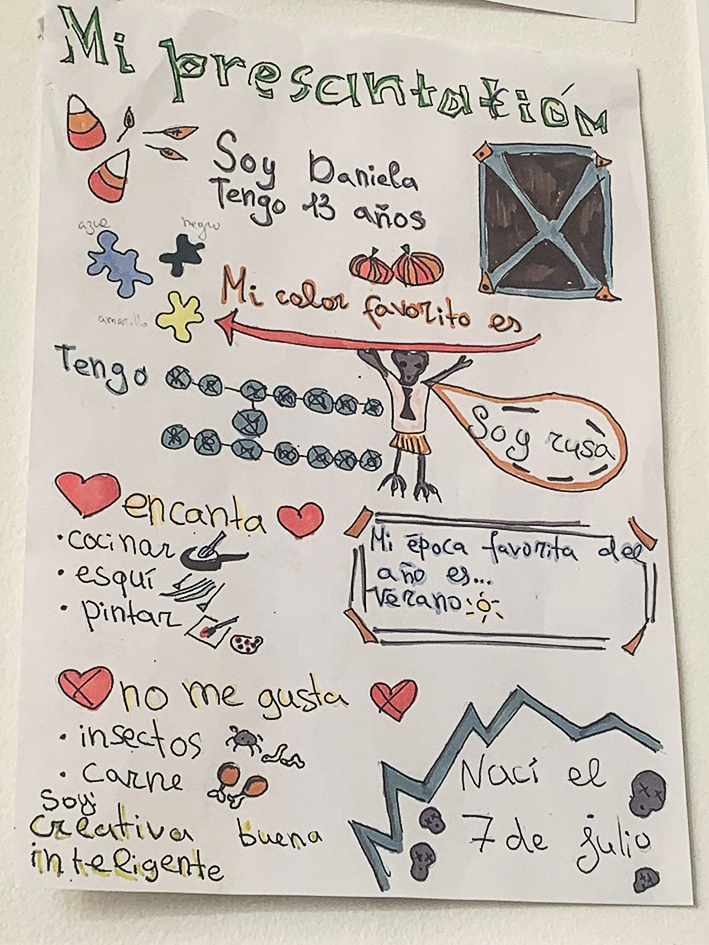 Mi presantatión
Soy Daniela
Tengo 13 años
azul
negro
amarillo
Mi color favorito es
Tengo
Soy rusa
encanta
• cocinar
• esquí
• pintar
Mi época favorita del
año es...
verano
no me gusta
• insectos
• carne
Soy:
creativa buena
inteligente
Nací el
7 de julio